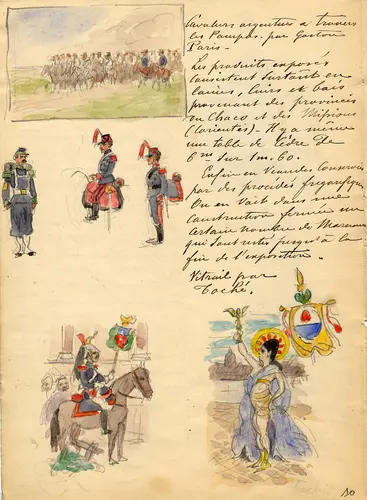 Cavaliers argentins à travers
les Pampas. par Gaston
Paris -
Les produits exposés
consistent surtout en
laines, cuirs et bois
provenant des provinces
du Chaco et des Missions
(Corientes) - Il y a même
une table de Cèdre de
6m sur 1m.60.
Enfin en Viandes conservées
par des procédés frigorifiques
On en voit dans une
construction fermée un
certain nombre de Morceaux
qui sont restés jusqu'à la
fin de l'exposition.
Vitrail par
Toché.